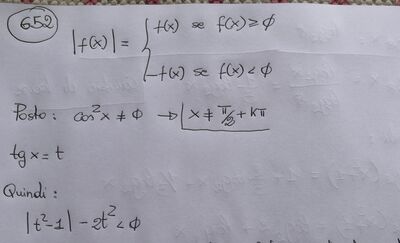 652
|f(x)| = { f(x) se f(x) ≥ ϕ
-f(x) se f(x) < ϕ
Posto: cos²x ≠ ϕ → x ≠ π/2 + kπ
tg x = t
Quindi:
|t²-1| - 2t² < ϕ